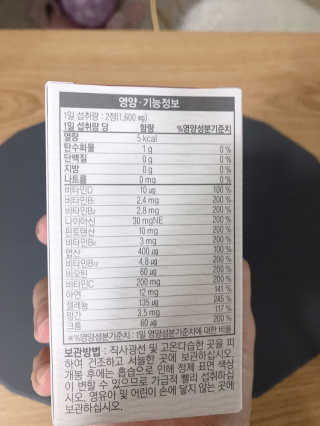 영양·기능정보
1일 섭취량 : 2정(1,600 mg)
1일 섭취량 당 함량 %영양성분기준치
열량 5 kcal
탄수화물 1 g 0 %
단백질 0 g 0 %
지방 0 g 0 %
나트륨 0 mg 0 %
비타민D 10 μg 100 %
비타민B₁ 2.4 mg 200 %
비타민B₂ 2.8 mg 200 %
나이아신 30 mgNE 200 %
판토텐산 10 mg 200 %
비타민B₆ 3 mg 200 %
엽산 400 μg 100 %
비타민B₁₂ 4.8 μg 200 %
비오틴 60 μg 200 %
비타민C 200 mg 200 %
아연 12 mg 141 %
셀레늄 135 μg 245 %
망간 3.5 mg 117 %
크롬 60 μg 200 %
※%영양성분기준치 : 1일 영양성분기준치에 대한 비율
보관방법 : 직사광선 및 고온다습한 곳을 피
하여 건조하고 서늘한 곳에 보관하십시오.
개봉 후에는 흡습으로 인해 정제 표면 색상
이 변할 수 있으므로 가급적 빨리 섭취하십
시오. 영유아 및 어린이 손에 닿지 않는 곳에
보관하십시오.